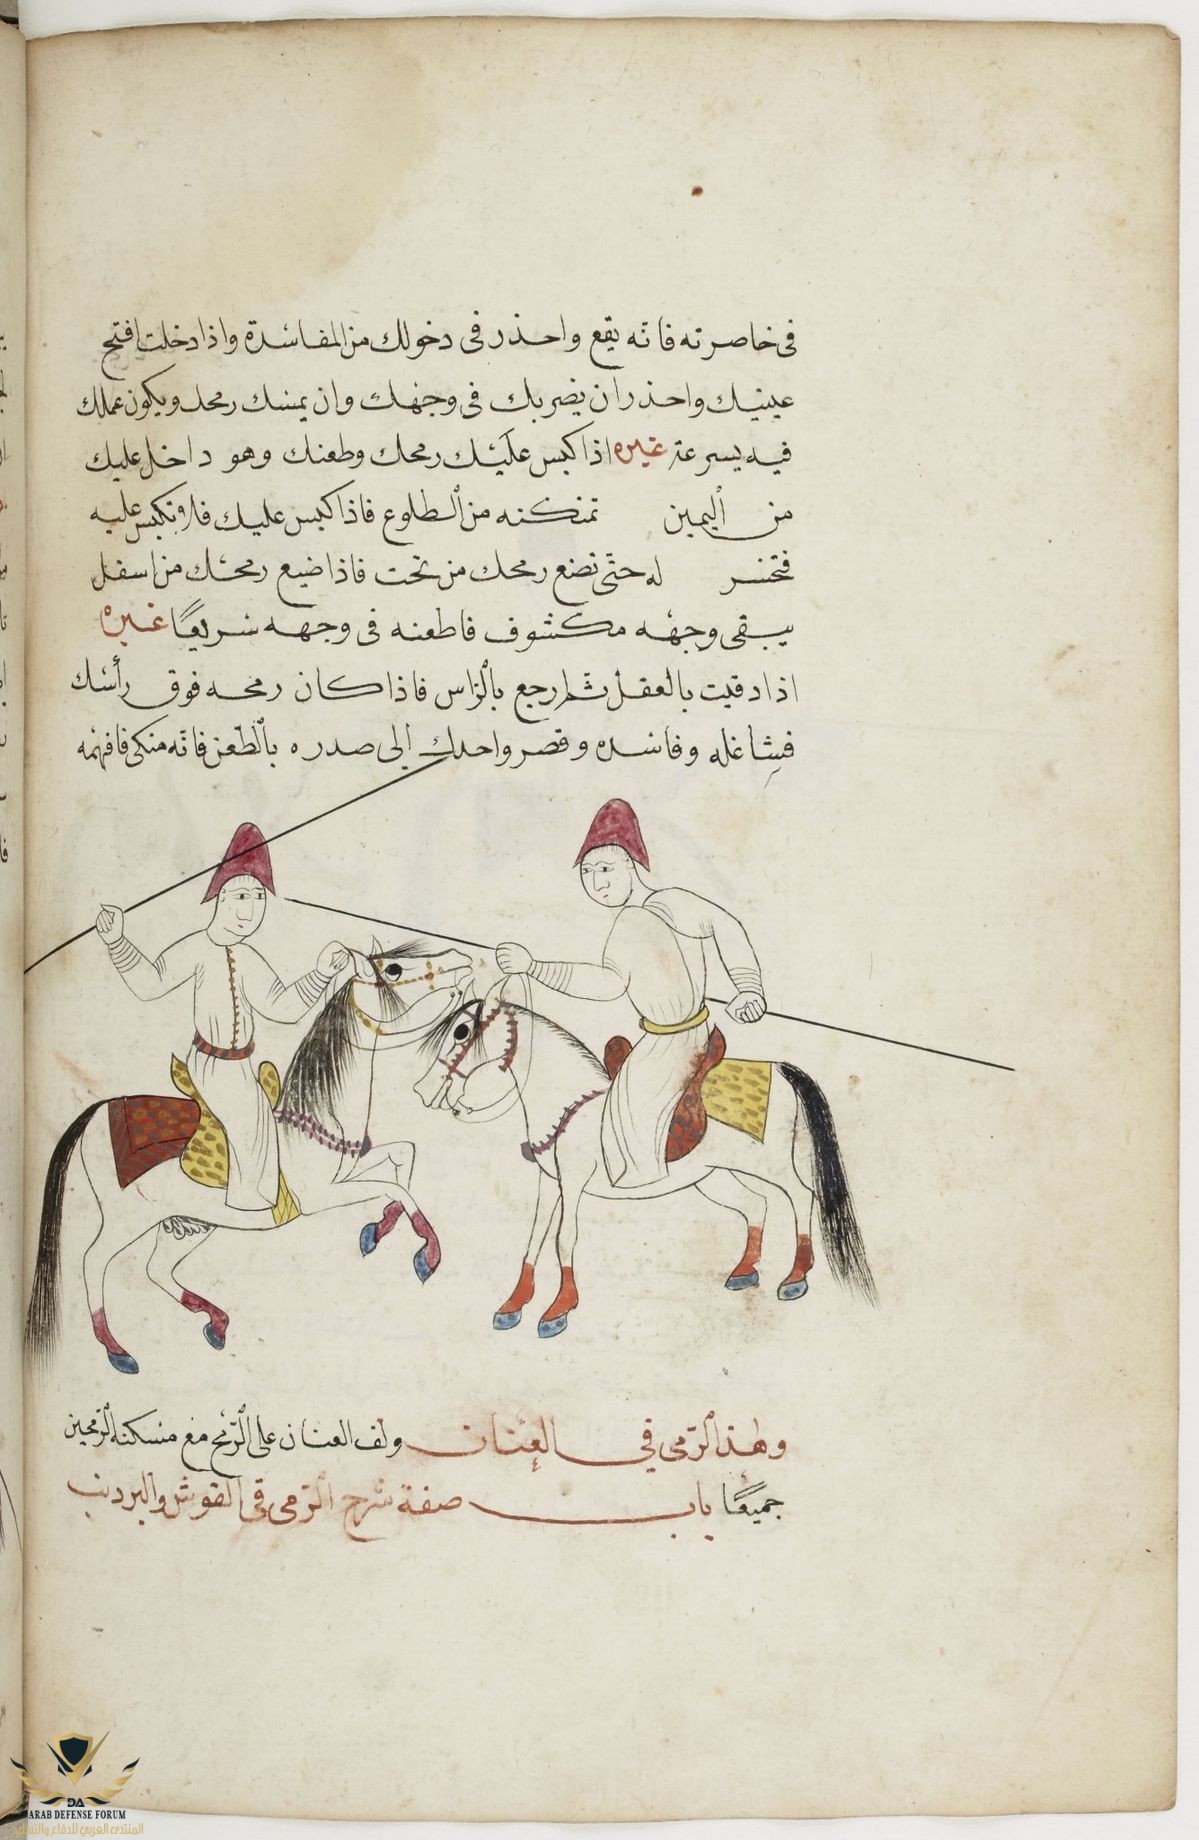 فى خاصرته فانه يقع واحذر فى دخولك من المفاسدة واذا دخلت افتح
عينيك واحذر ان يضربك فى وجهك وان يمسك رمحك ويكون عملك
فيه بسرعة غيره اذا كبس عليك رمحك وطعنك وهو داخل عليك
من اليمين تمكنه من الطلوع فاذا كبس عليك فارم تكبس عليه
فتخسر له حتى تضع رمحك من تحت فاذا ضيع رمحك من اسفل
يبقى وجهه مكشوف فاطعنه فى وجهه سريعًا غيره
اذا دقيت بالعقل ثم ارجع بالراس فاذا كان رمحه فوق رأسك
فشاغله وفاسده وقصر واحدك الى صدره بالطعن فانه منكى فافهمه
وهذا الرمى في العنان ولف العنان على الرمح مع مسكته الرمحين
جميعًا باب صفة شرح الرمى فى القوش والبردنب
DA
ARAB DEFENSE FORUM
المنتدى العربي للدفاع والتسليح